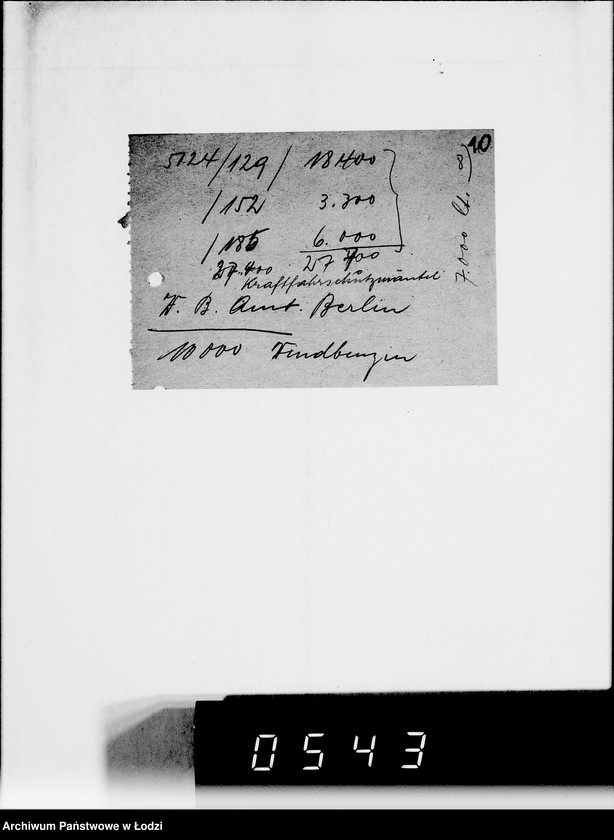 10
5124/129/ 18400
/152 3.300
/185 6.000
27.700 27 700
Kraftfahrschutzmäntel
W. B. Amt. Berlin
10000
7.000 lt.
0543
Archiwum Państwowe w Łodzi